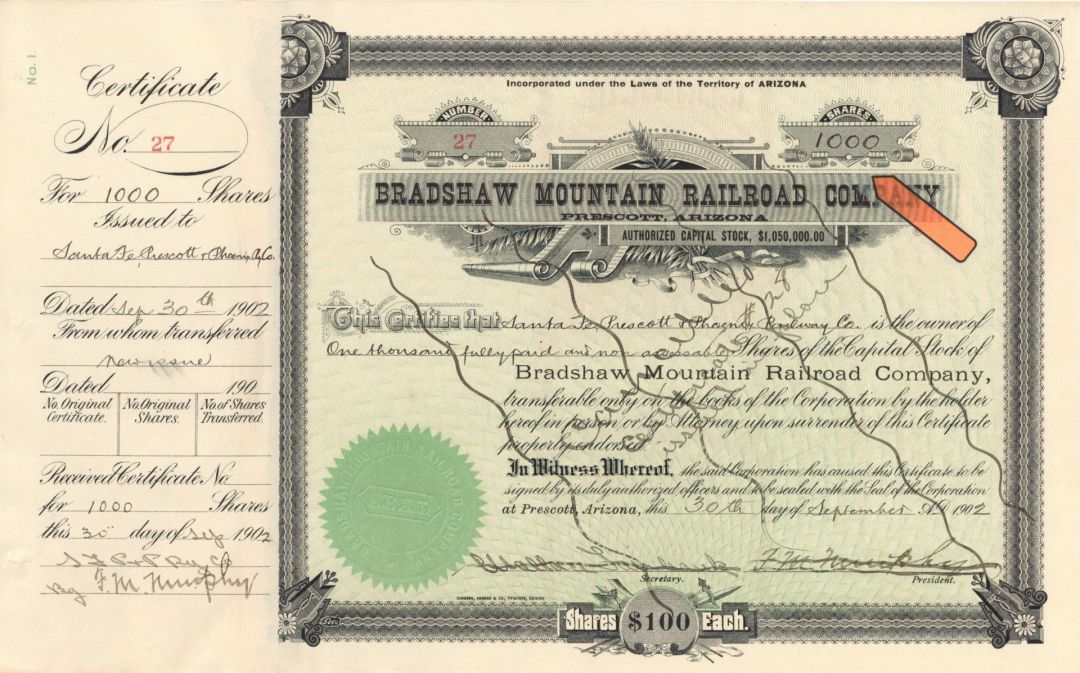 No. 1.
Certificate
No. 27
For 1000 Shares
Issued to
Santa Fe, Prescott & Phoenix Ry Co.
Dated Sep 30th 1902
From whom transferred
New issue
Dated 190
No. Original Certificate. No. Original Shares. No. of Shares Transferred.
Received Certificate No.
for 1000 Shares
this 30" day of Sep 1902
S. F. P. & P. Ry Co
By F. M. Murphy
Incorporated under the Laws of the Territory of ARIZONA
NUMBER
27
SHARES
1000
BRADSHAW MOUNTAIN RAILROAD COMPANY
PRESCOTT, ARIZONA
AUTHORIZED CAPITAL STOCK, $1,050,000.00
This Certifies that Santa Fe, Prescott & Phoenix Railway Co. is the owner of
One thousand fully paid and non assessable Shares of the Capital Stock of
Bradshaw Mountain Railroad Company,
transferable only on the books of the Corporation by the holder
hereof in person or by Attorney, upon surrender of this Certificate
properly endorsed.
In Witness Whereof, the said Corporation has caused this Certificate to be
signed by its duly authorized officers and to be sealed with the Seal of the Corporation
at Prescott, Arizona, this 30th day of September A.D. 1902
Cancelled
issued
F. M. Murphy
Secretary. President.
Shares $100 Each.